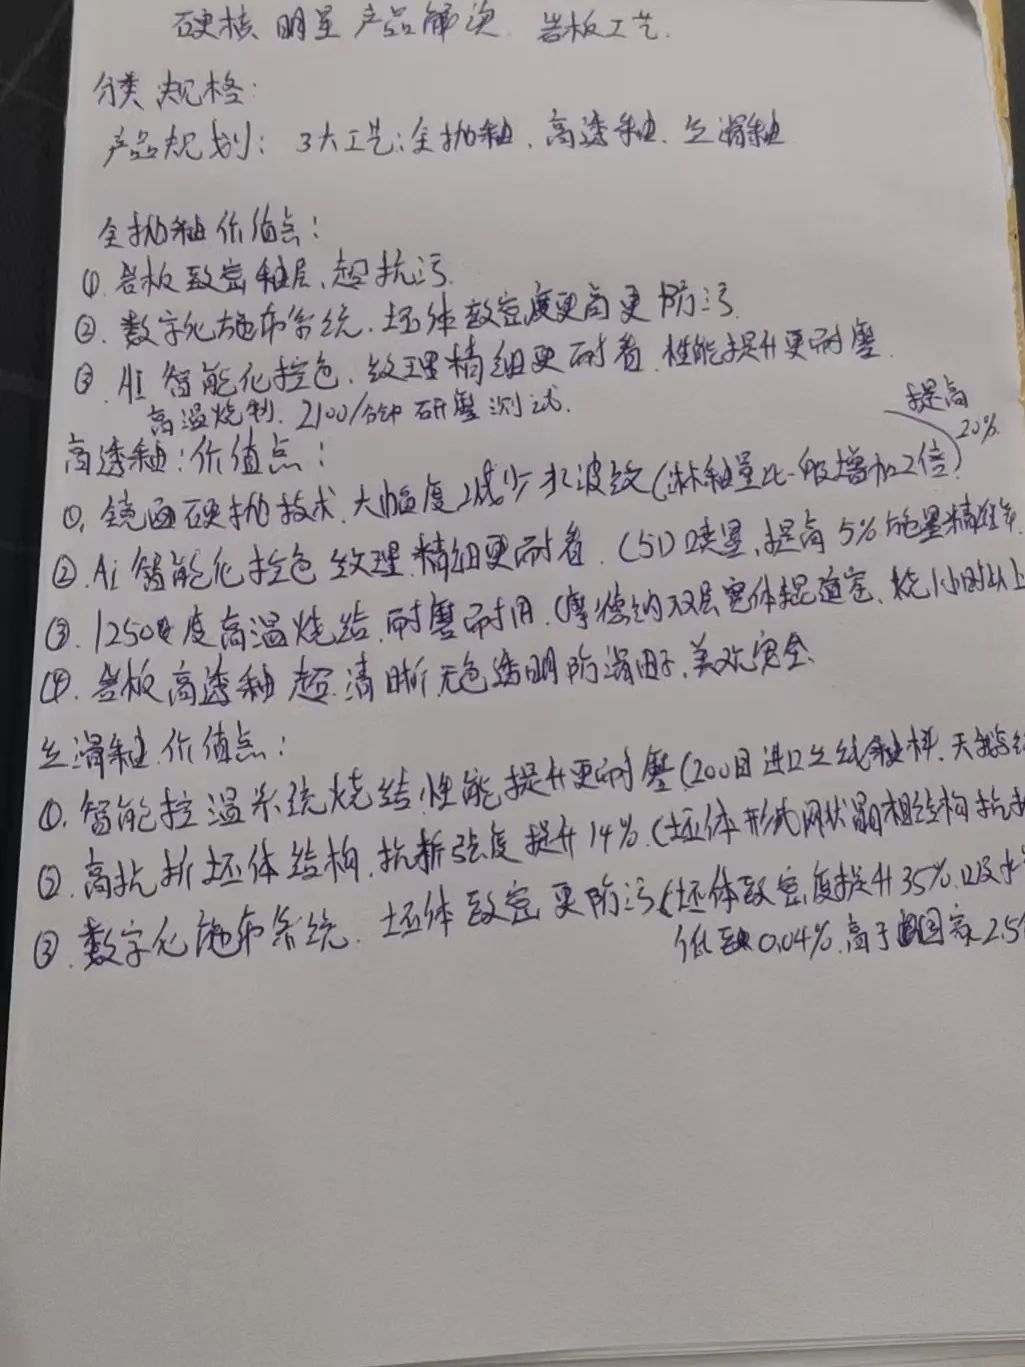 硬核明星产品解决 岩板工艺.
分类规格:
产品规划: 3大工艺:全抛釉、高透釉、丝滑釉
全抛釉价值点:
①.岩板致密釉层、超抗污.
②.数字化施布系统.坯体致密度更高更防污.
③.AI智能化控色、纹理精细更耐看.性能提升更耐磨.
高温烧制.2100/分钟研磨测试.
提高
20%
高透釉:价值点:
①.镜面硬抛技术.大幅度减少水波纹(淋釉量比一般增加2倍)
②.Ai智能化控色纹理.精细更耐看.(5D喷墨、提高5%施墨精准率
③.1250度高温烧结.耐磨耐用.(摩德纳双层宽体辊道窑、烧1小时以上
④.岩板高透釉超.清晰无色透明防滑因子.美观安全.
丝滑釉.价值点:
①.智能控温系统烧结.性能提升更耐磨(200目进口丝线釉料.天鹅
②.高抗折坯体结构.抗折强度提升14%.(坯体形成网状晶相结构抗
③.数字化施布系统.坯体致密更防污(坯体致密度提升35%.吸水
低至0.04%.高于国家2.5